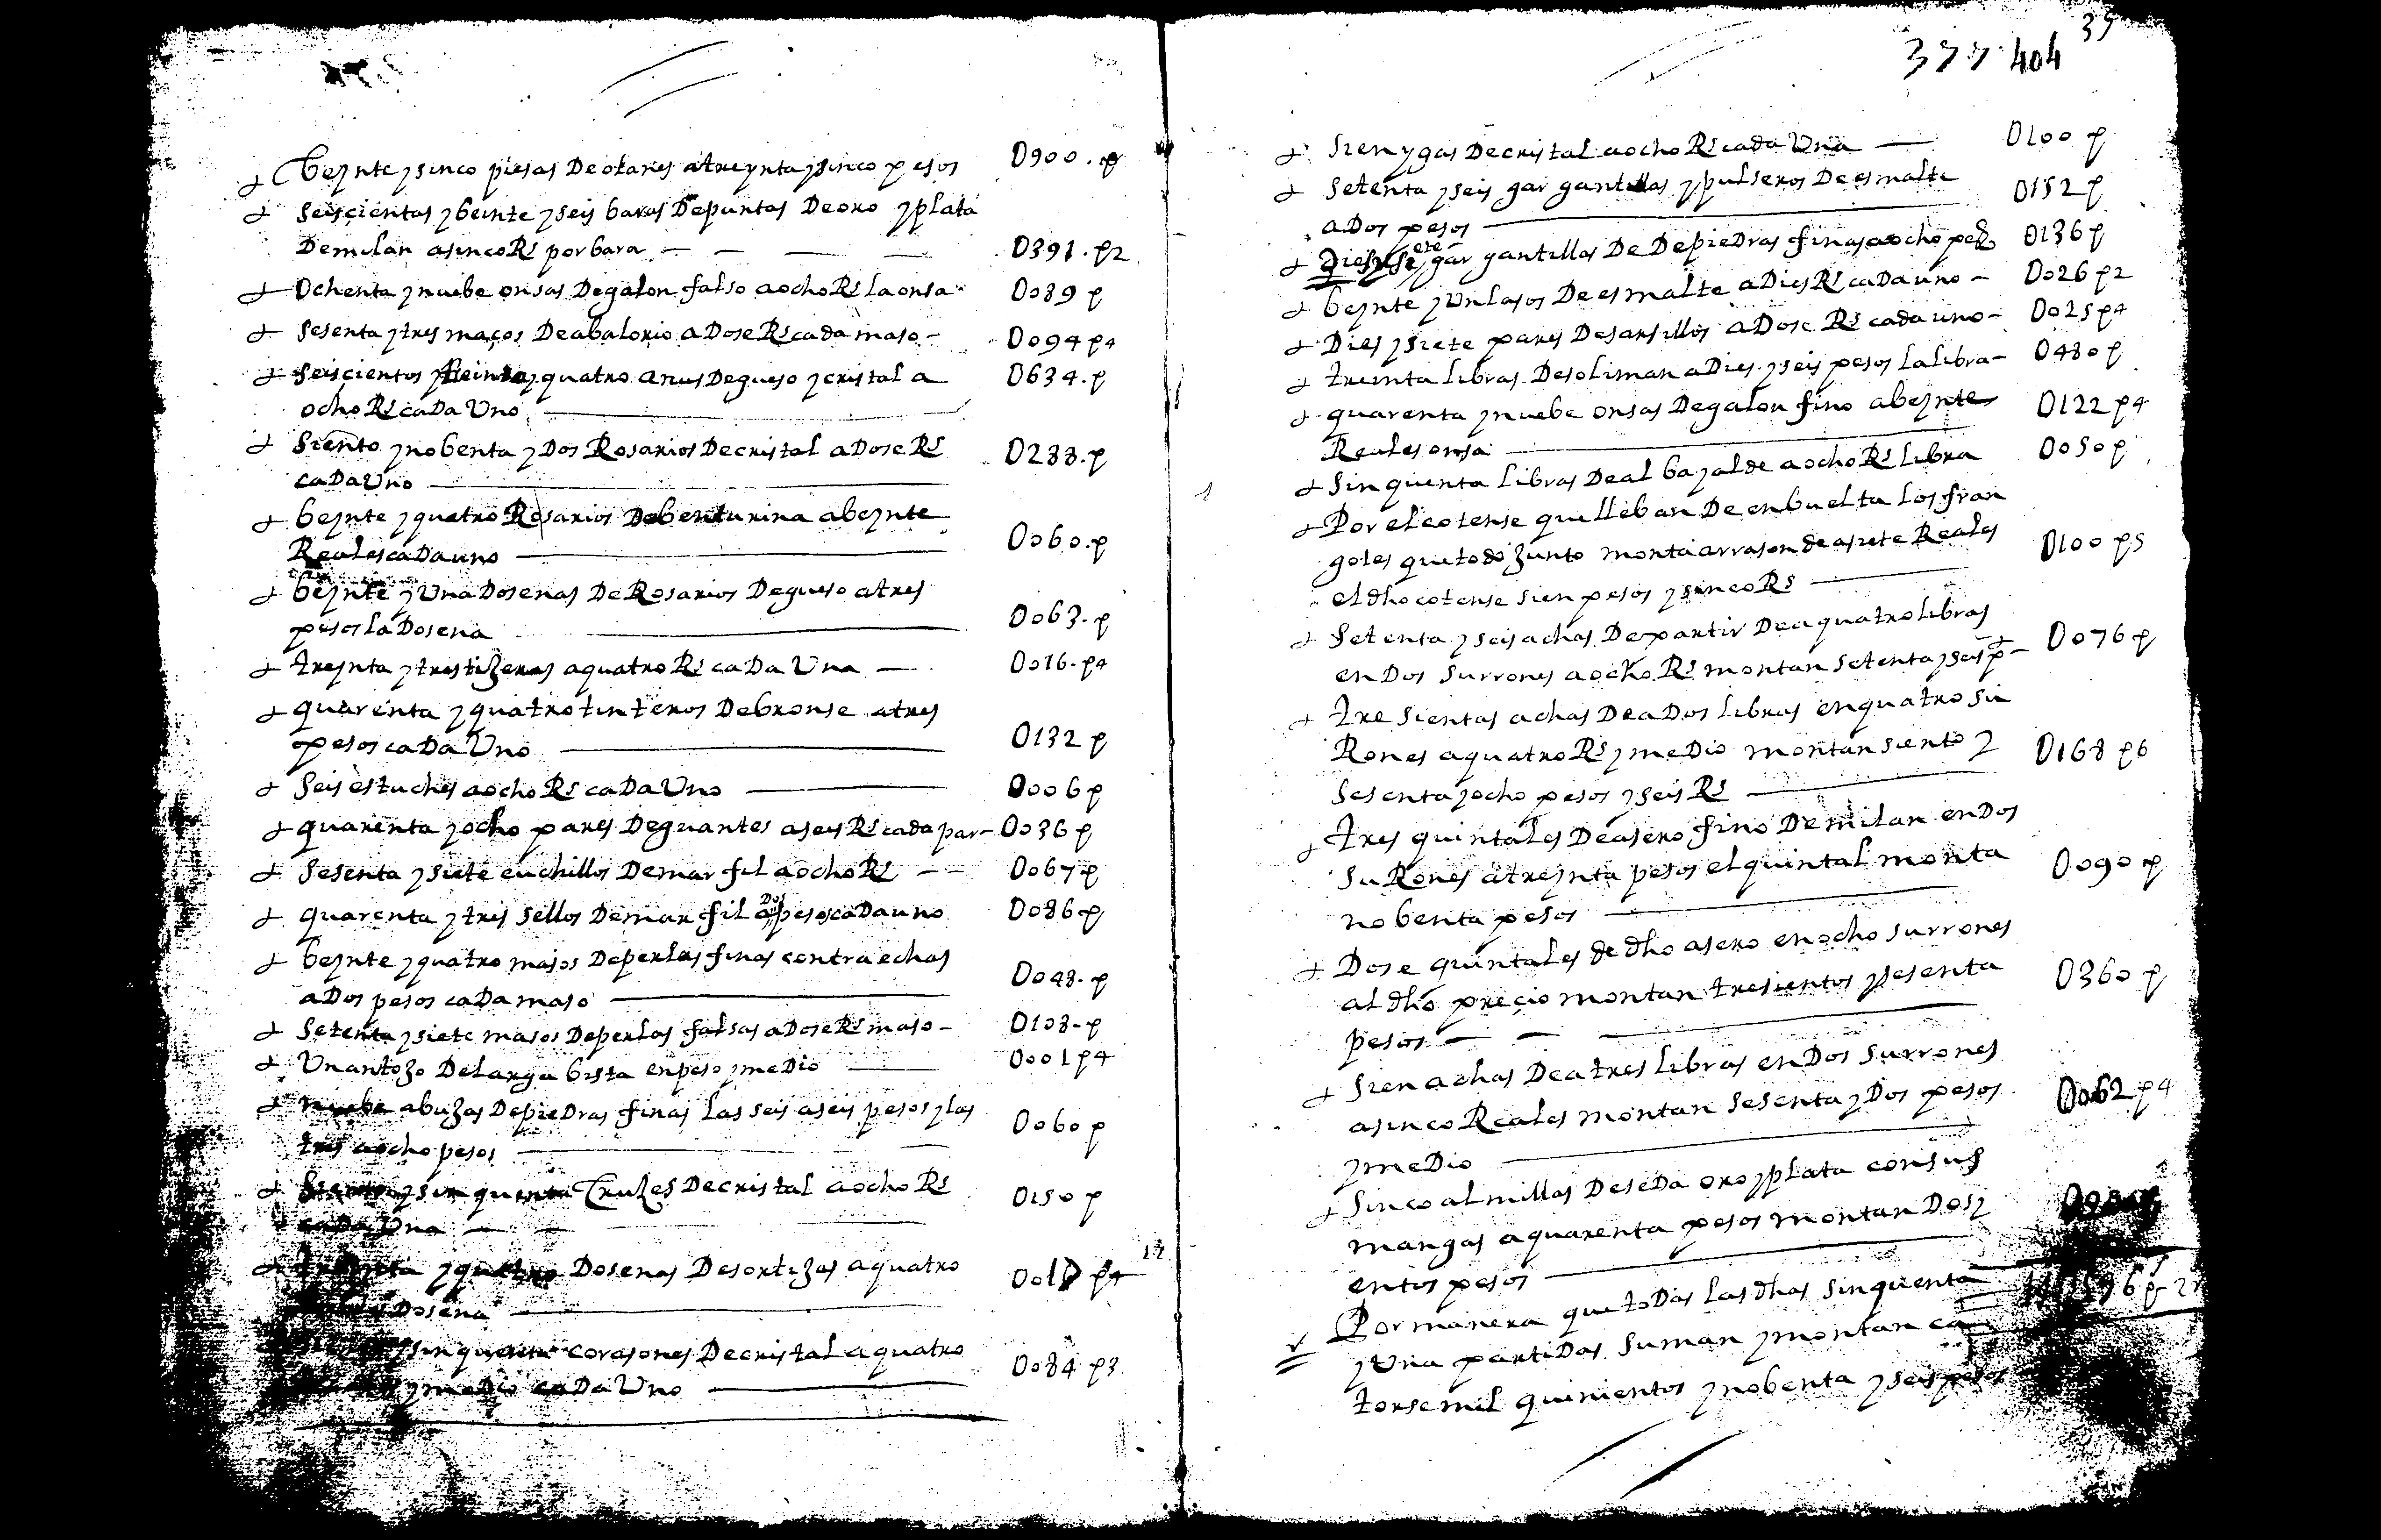 beynte y sinco piesas De olanes a treynta y sinco pesos 0900.p
seiscientas y beinte y seis baras De puntas De oro y plata
De milan a sinco Rs por bara 0391.p2
Ochenta y nuebe onsas De galon falso a ocho Rs la onsa 0089 p
sesenta y tres maços De abalorio a Dose Rs cada maso 0094 p4
seiscientos y treinta y quatro anus De gueso y cristal a 0634.p
ocho Rs cada Uno
siento y nobenta y Dos Rosarios De cristal a Dose Rs 0288.p
cada Uno
beynte y quatro Rosarios De benturina a beynte
Reales cada uno 0060.p
beynte y Una Dosenas De Rosarios De gueso a tres
pesos la Dosena 0063.p
treynta y tres tixeras a quatro Rs cada Una 0016.p4
quarenta y quatro tinteros De bronse a tres
pesos cada Uno 0132 p
seis estuches a ocho Rs cada Uno 0006 p
quarenta y ocho pares De guantes a seis Rs cada par 0036 p
sesenta y siete cuchillos De marfil a ocho Rs 0067 p
quarenta y tres sellos De marfil a Dos pesos cada uno 0086 p
beynte y quatro masos De perlas finas contraechas
a Dos pesos cada maso 0048.p
setenta y siete masos De perlas falsas a Dose Rs maso 0108 p
Un antojo De larga bista en peso y medio 0001 p4
nuebe abujas De piedras finas las seis a seis pesos y las
tres a ocho pesos 0060 p
siento y sinquenta Cruzes De cristal a ocho Rs 0150 p
cada Una
y quatro Dosenas De sortijas a quatro
Dosena 17 p4
y sinquenta corasones De cristal a quatro
y medio cada Uno 0084 p3
35
377 404
sien ygas De cristal a ocho Rs cada Una 0100 p
setenta y seis gargantillas y pulseros De esmalte 0152 p
a Dos pesos
Dies y siete gargantillas De De piedras finas a ocho pes 0136 p
beynte y Un lasos De esmalte a Dies Rs cada uno 0026 p2
Dies y siete pares De sarsillos a Dose Rs cada uno 0025 p4
treinta libras De soliman a Dies y seis pesos la libra 0480 p
quarenta y nuebe onsas De galon fino a beynte 0122 p4
Reales onsa
sinquenta libras De albayalde a ocho Rs libra 0050 p
Por el cotense que lleban De enbuelta los fran
goles que todo junto monta a rrason de a siete Reales 0100 p5
el dho cotense sien pesos y sinco Rs
setenta y seis achas De partir De a quatro libras
en Dos surrones a ocho Rs montan setenta y seis p 0076 p
tresientas achas De a Dos libras en quatro su
Rones a quatro Rs y medio montan siento y 0168 p6
sesenta y ocho pesos y seis Rs
tres quintales De asero fino De milan en Dos
suRones a treynta pesos el quintal monta 0090 p
nobenta pesos
Dose quintales de dho asero en ocho surrones
al dho preçio montan tresientos y sesenta 0360 p
pesos
sien achas De a tres libras en Dos surrones
a sinco Reales montan sesenta y Dos pesos 0062 p4
y medio
sinco almillas De seda oro y plata con sus
mangas a quarenta pesos montan Dosi
entos pesos
Por manera que todas las dhas sinquenta
y Una partidas suman y montan ca
torse mil quinientos y nobenta y seis pesos